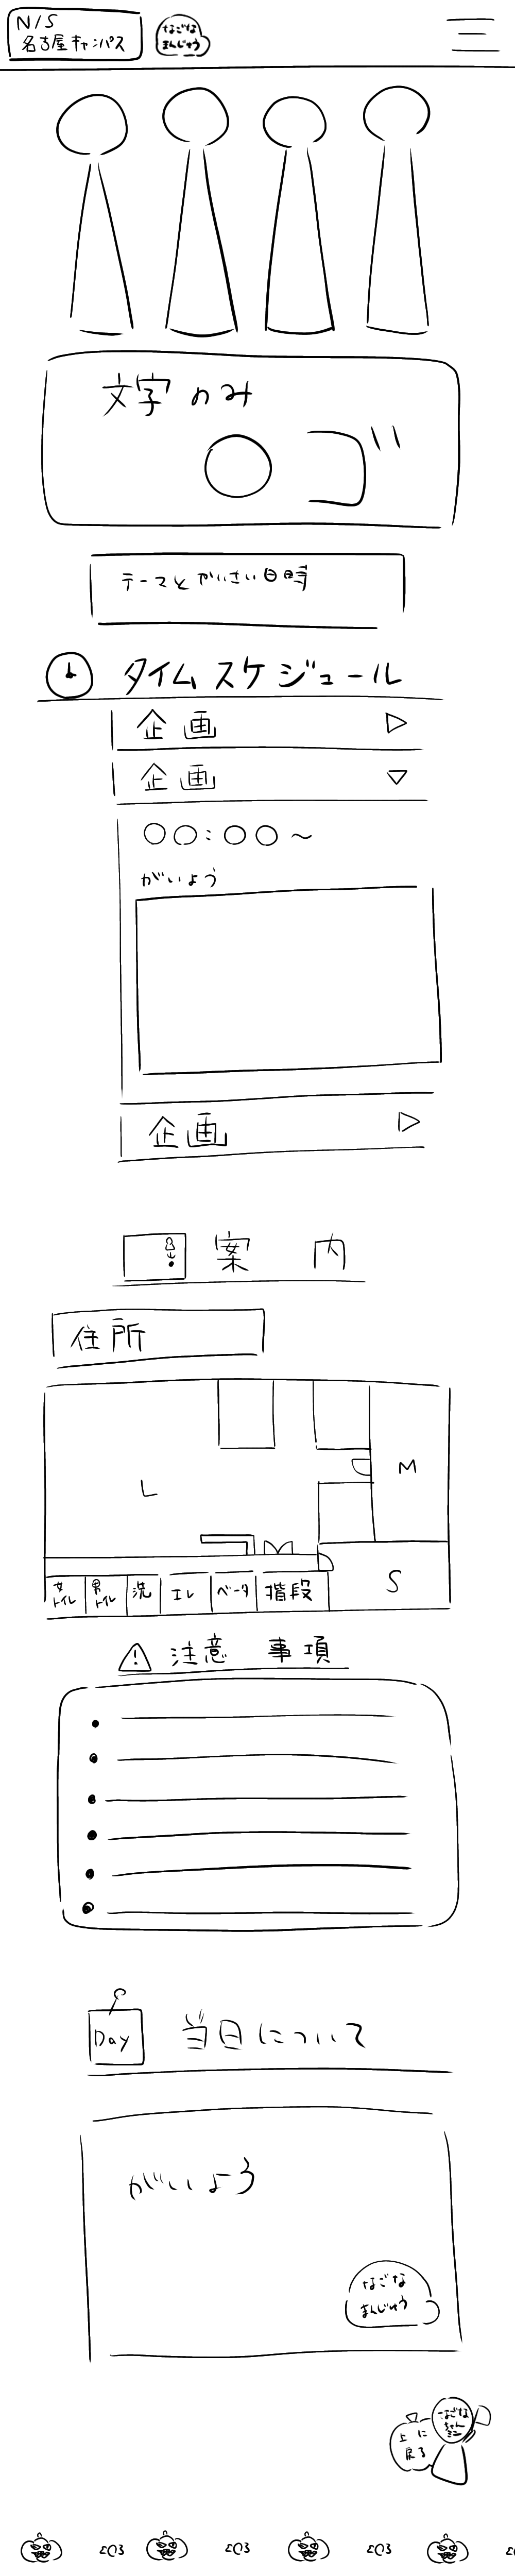 N/S
名古屋キャンパス
なごな
まんじゅう
文字のみ
ロゴ
テーマとかいさい日時
タイムスケジュール
企画
企画
○○:○○～
がいよう
企画
案内
住所
L
M
S
女トイレ
男トイレ
洗
エレ
ベータ
階段
注意事項
Day
当日について
がいよう
なごな
まんじゅう
上に
戻る
なごな
ちゃん